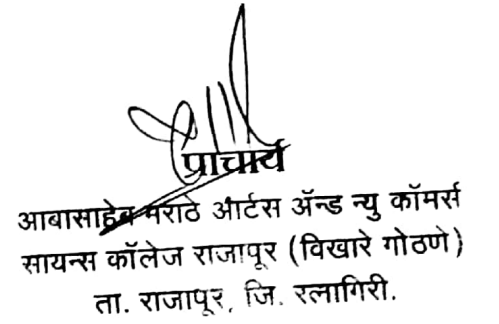 प्राचार्य
आबासाहेब मराठे आर्टस ॲन्ड न्यु कॉमर्स
सायन्स कॉलेज राजापूर (विखारे गोठणे)
ता. राजापूर, जि. रत्नागिरी.